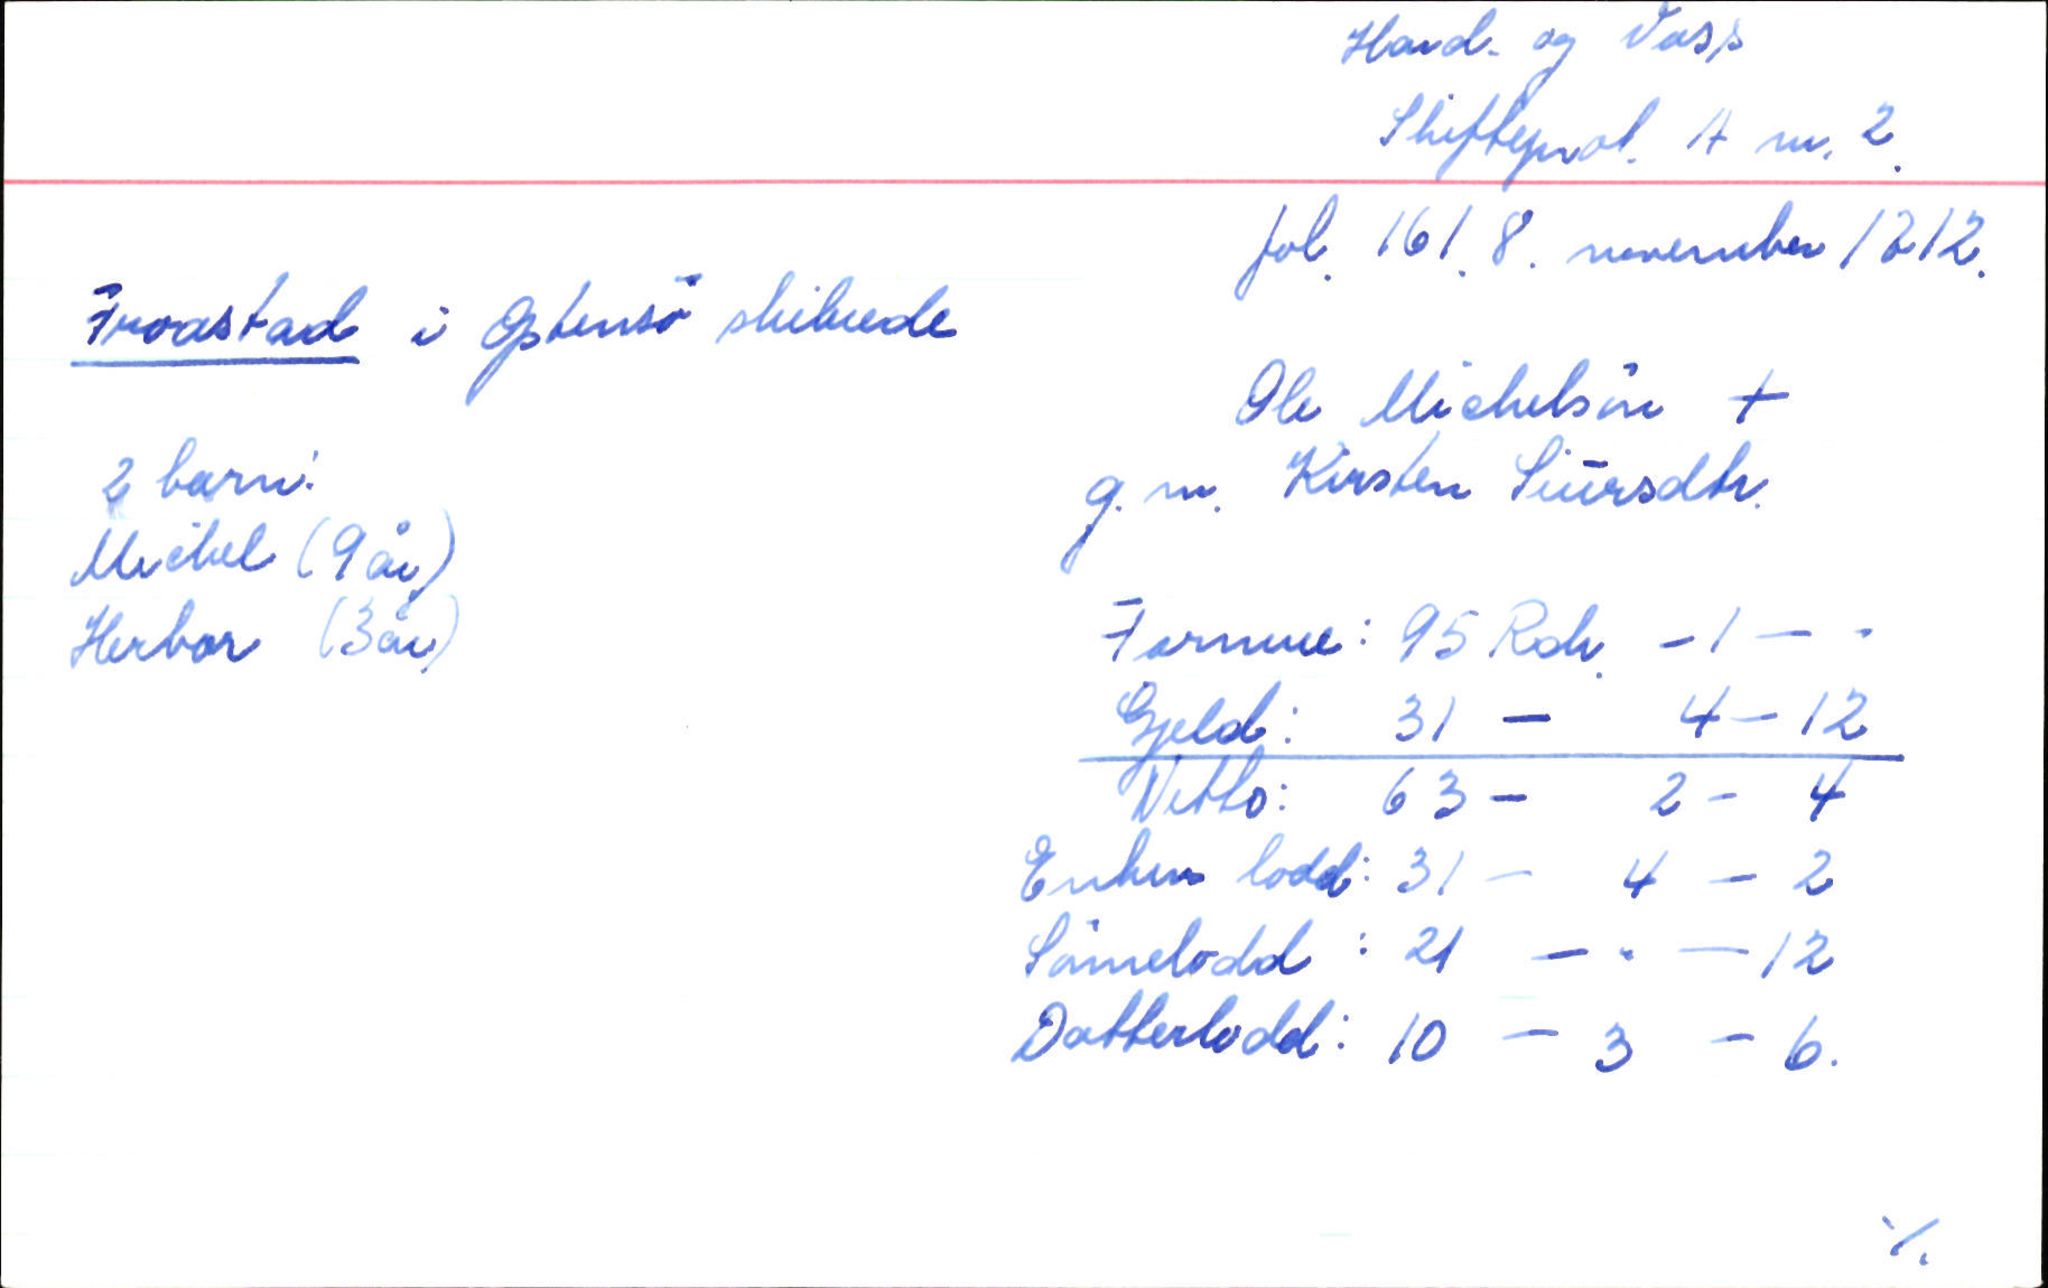 Hard. og Voss
Skifteprot. A nr. 2.
fol. 161. 8. november 1712.
Froastad i Østensö skibrede
Ole Michelsön +
g. m. Kirsten Siursdtr.
2 barn:
Michel (9 år)
Herbor (3 år)
Formue: 95 Rdr. - 1 - -
Gjeld: 31 - 4 - 12
Netto: 63 - 2 - 4
Enkens lodd: 31 - 4 - 2
Sönnelodd : 21 - . - 12
Datterlodd: 10 - 3 - 6.